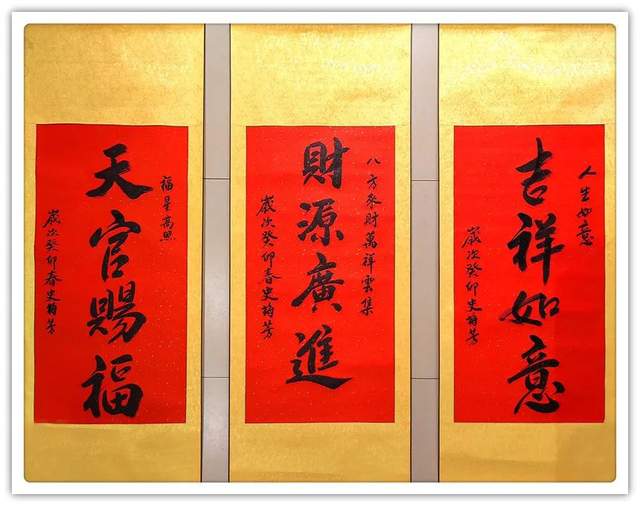 人生如意
吉祥如意
歲次癸卯史梅芳
八方來財萬祥雲集
財源廣進
歲次癸卯春史梅芳
福星高照
天官賜福
歲次癸卯春史梅芳